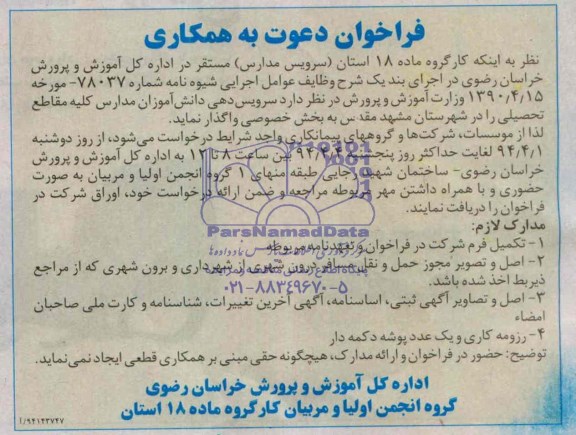 فراخوان دعوت به همکاری
نظر به اینکه کارگروه ماده ۱۸ استان (سرویس مدارس) مستقر در اداره کل آموزش و پرورش
خراسان رضوی در اجرای بند یک شرح وظایف عوامل اجرایی شیوه نامه شماره ۷۸۰۳۷- مورخه
۱۳۹۰/۴/۱۵ وزارت آموزش و پرورش در نظر دارد سرویس‌دهی دانش‌آموزان مدارس کلیه مقاطع
تحصیلی را در شهرستان مشهد مقدس به بخش خصوصی واگذار نماید.
لذا از موسسات، شرکت‌ها و گروههای پیمانکاری واجد شرایط درخواست می‌شود، از روز دوشنبه
۹۴/۴/۱ لغایت حداکثر روز پنجشنبه بین ساعت ۸ تا به اداره کل آموزش و پرورش
خراسان رضوی- ساختمان شهید رجایی طبقه منهای ۱ گروه انجمن اولیا و مربیان به صورت
حضوری و با همراه داشتن مهر مربوطه مراجعه و ضمن ارائه درخواست خود، اوراق شرکت در
فراخوان را دریافت نمایند.
ParsNamadData
مدارک لازم:
۱- تکمیل فرم شرکت در فراخوان و تعهدنامه مربوطه
۲- اصل و تصویر مجوز حمل و نقل مسافر درون شهری از شهرداری و برون شهری که از مراجع
ذیربط اخذ شده باشد.
۰۲۱-۸۸۳۴۹۶۷۰-۵
۳- اصل و تصاویر آگهی ثبتی، اساسنامه، آگهی آخرین تغییرات، شناسنامه و کارت ملی صاحبان
امضاء
۴- رزومه کاری و یک عدد پوشه دکمه دار
توضیح: حضور در فراخوان و ارائه مدارک، هیچگونه حقی مبنی بر همکاری قطعی ایجاد نمی‌نماید.
اداره کل آموزش و پرورش خراسان رضوی
گروه انجمن اولیا و مربیان کارگروه ماده ۱۸ استان
۹۴۱۴۳۷۴۷/آ